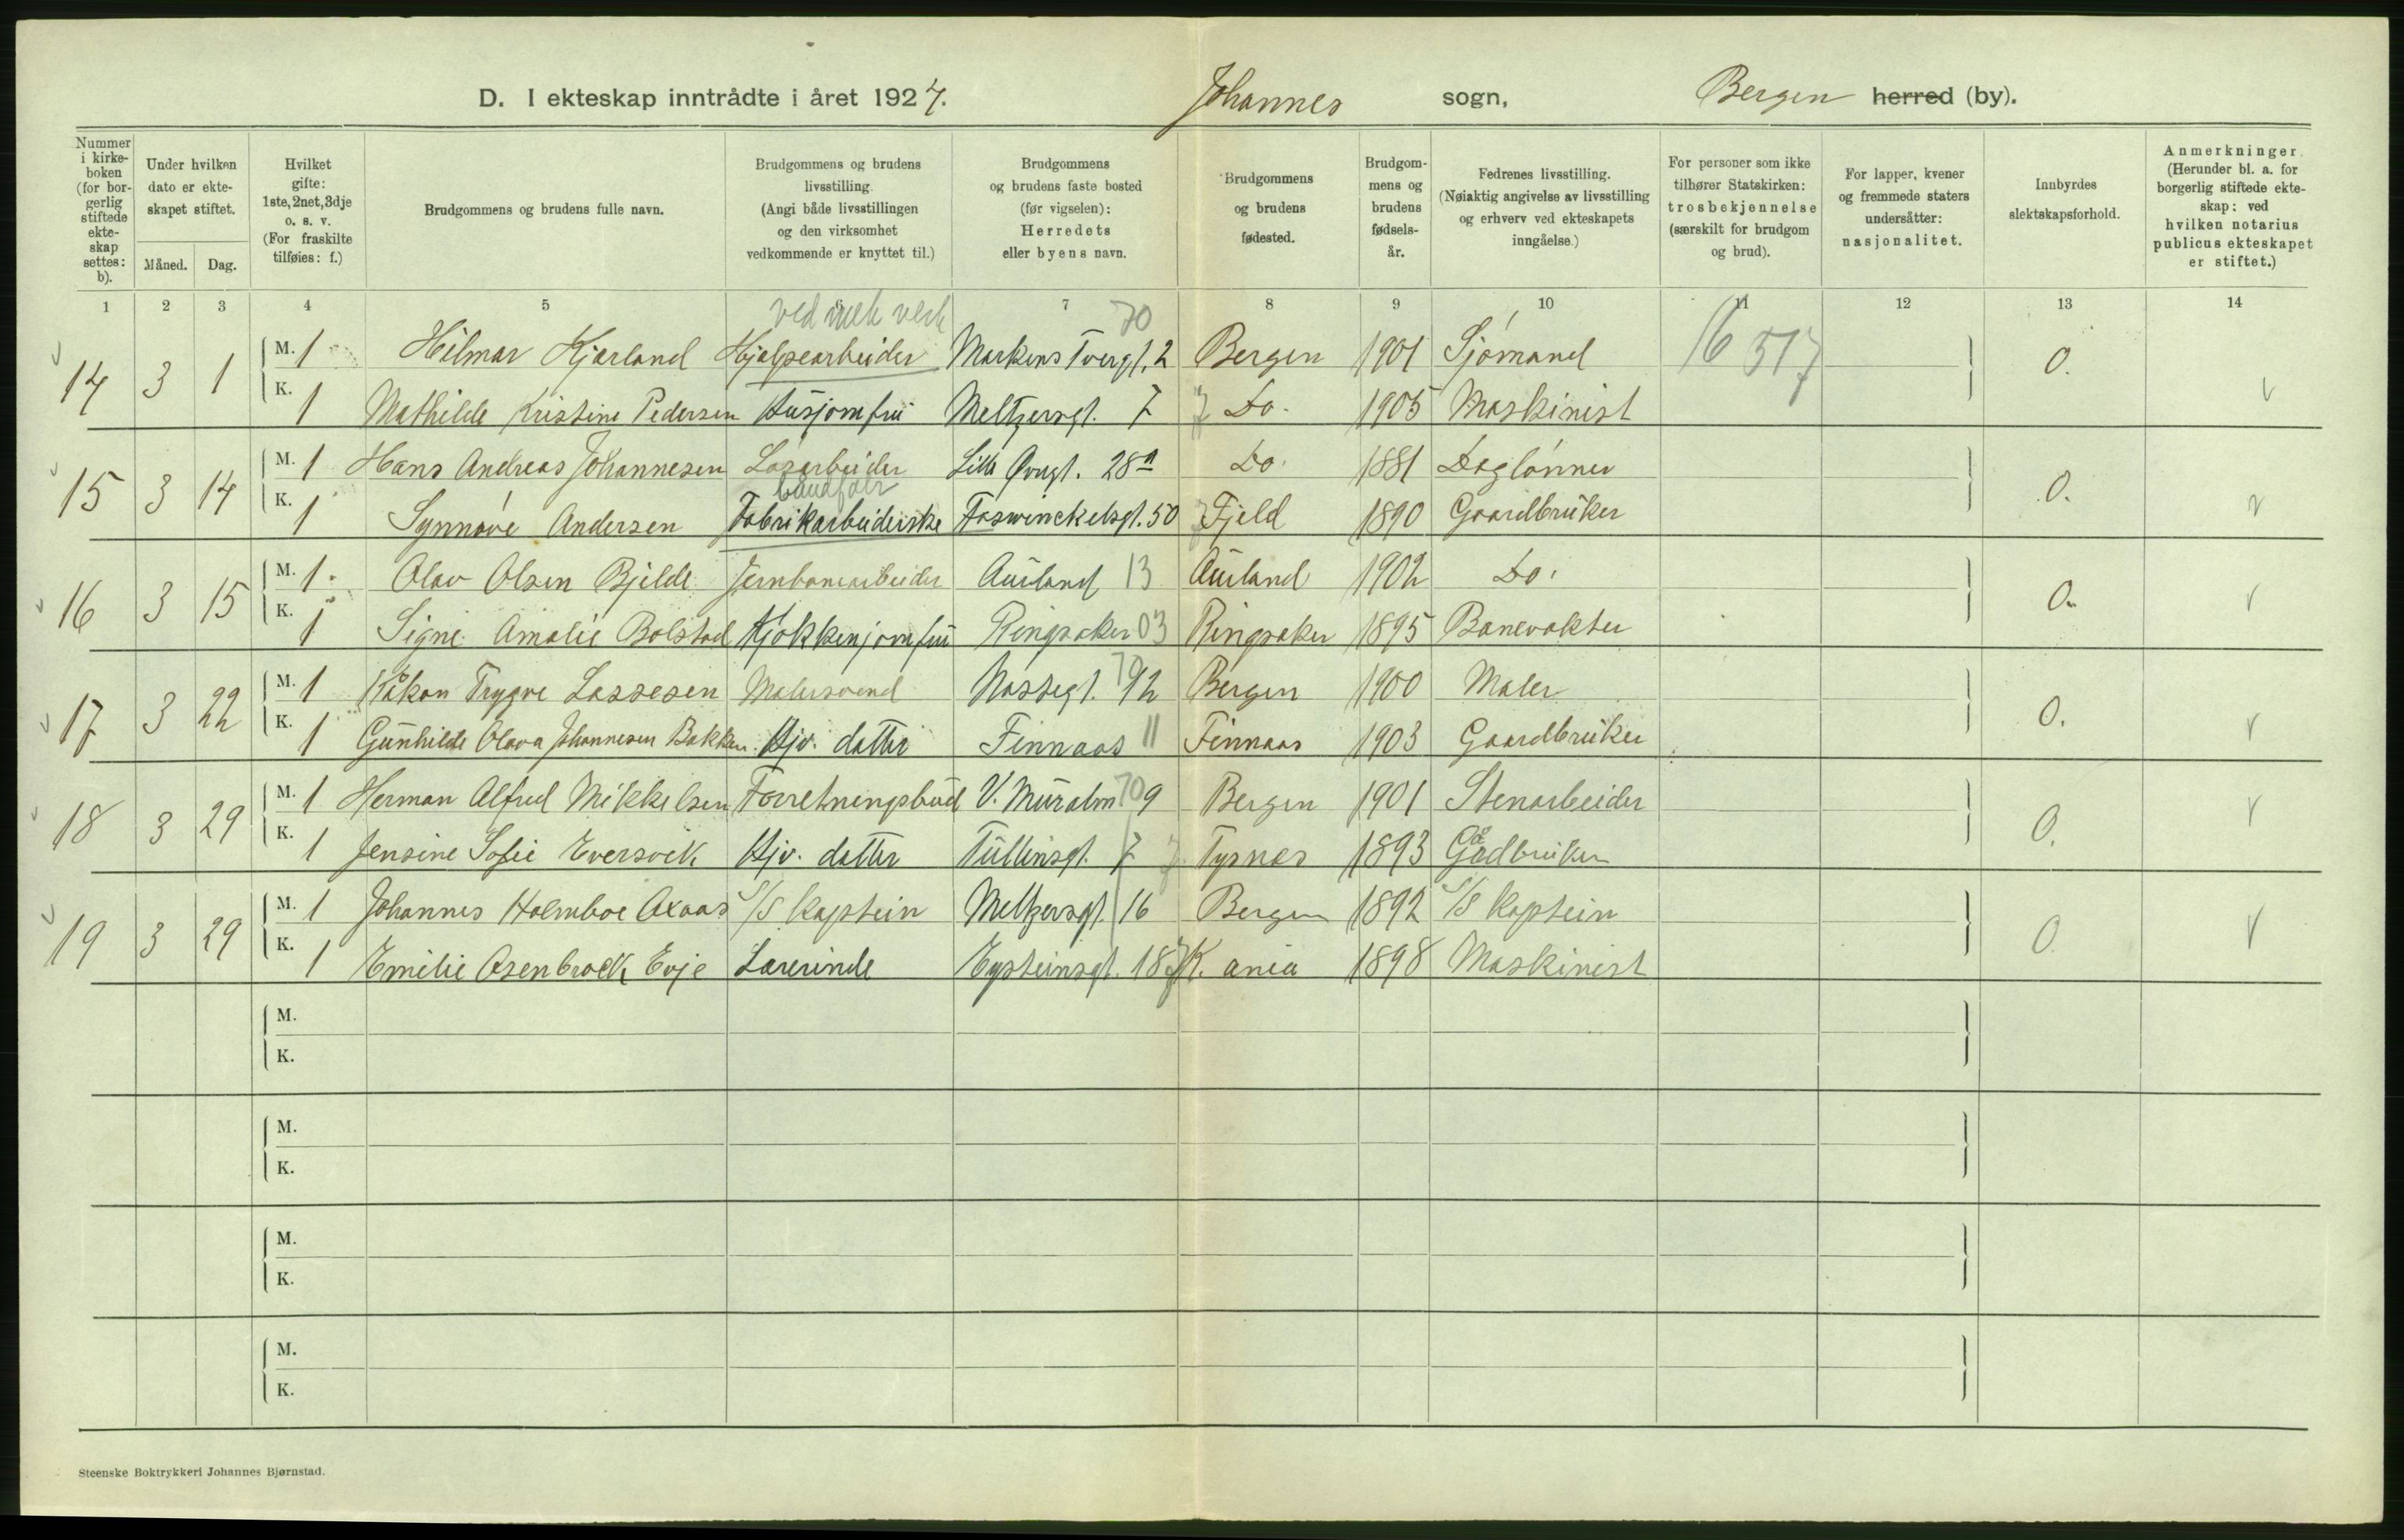 D. I ekteskap inntrådte i året 1924. Johannes sogn, Bergen herred (by).
Nummer i kirkeboken (for borgerlig stiftede ekteskap settes: b).
Under hvilken dato er ekteskapet stiftet.
Måned. Dag.
Hvilket gifte: 1ste, 2net, 3dje o. s. v. (For fraskilte tilføies: f.)
Brudgommens og brudens fulle navn.
Brudgommens og brudens livsstilling. (Angi både livsstillingen og den virksomhet vedkommende er knyttet til.)
Brudgommens og brudens faste bosted (før vigselen): Herredets eller byens navn.
Brudgommens og brudens fødested.
Brudgommens og brudens fødselsår.
Fedrenes livsstilling. (Nøiaktig angivelse av livsstilling og erhverv ved ekteskapets inngåelse.)
For personer som ikke tilhører Statskirken: trosbekjennelse (særskilt for brudgom og brud).
For lapper, kvener og fremmede staters undersåtter: nasjonalitet.
Innbyrdes slektskapsforhold.
Anmerkninger. (Herunder bl. a. for borgerlig stiftede ekteskap: ved hvilken notarius publicus ekteskapet er stiftet.)
1 2 3 4 5 7 8 9 10 11 12 13 14
ved mek verk 70
14 3 1 M. 1 Hilmar Kjærland Hjælpearbeider Markens Tvergt. 2 Bergen 1901 Sjömand 16 517 0.
K. 1 Mathilde Kristine Pedersen Husjomfru Meltzersgt. 7 Do. 1905 Maskinist
15 3 14 M. 1 Hans Andreas Johannesen Løsarbeider Lille Øvregt. 28a Do. 1881 Daglönner 0.
K. 1 Synnöve Andersen Fabrikarbeiderske Foswinckelsgt. 50 Fjeld 1890 Gaardbruker
16 3 15 M. 1 Olav Olsen Bjelde Jernbanearbeider Aurland 13 Aurland 1902 Do. 0.
K. 1 Signe Amalie Bolstad Kjøkkenjomfru Ringsaker 03 Ringsaker 1895 Banevokter
17 3 22 M. 1 Håkon Trygve Lassesen Malersvend Nöstegt. 70 92 Bergen 1900 Maler 0.
K. 1 Gunhilde Olava Johannesen Bakken Hjv. datter Finnaas 11 Finnaas 1903 Gaardbruker
18 3 29 M. 1 Herman Alfred Mikkelsen Forretningsbud V. Muralm 70 9 Bergen 1901 Stenarbeider 0.
K. 1 Jensine Sofie Eversvik Hjv. datter Tullinsgt. 7 Tysnes 1893 Gådbruker
19 3 29 M. 1 Johannes Holmboe Axaas S/S Kaptein Meltzersgt. 16 Bergen 1892 S/S Kaptein 0.
K. 1 Emilie Osenbrock Evje Lærerinde Eysteinsgt. 18 K. ania 1898 Maskinist
M.
K.
M.
K.
M.
K.
M.
K.
Steenske Boktrykkeri Johannes Bjørnstad.